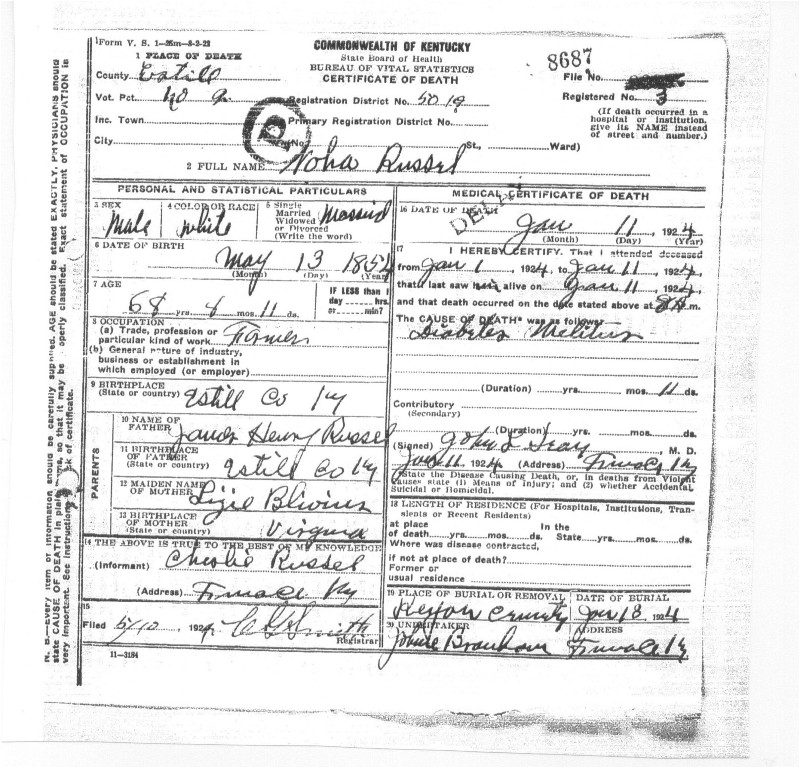 Form V. S. 1—25m—8-3-22
1 PLACE OF DEATH
COMMONWEALTH OF KENTUCKY
State Board of Health
BUREAU OF VITAL STATISTICS
CERTIFICATE OF DEATH
8687
File No.
County Estill
Vot. Pct.
Registration District No.
Registered No. 3
Inc. Town
Primary Registration District No.
(If death occurred in a
hospital or institution,
give its NAME instead
of street and number.)
City
(No. St., Ward)
2 FULL NAME Noha Russel
PERSONAL AND STATISTICAL PARTICULARS
3 SEX
Male
4 COLOR OR RACE
White
5 Single
Married
Widowed
or Divorced
(Write the word)
Married
6 DATE OF BIRTH
May 13 1854
(Month) (Day) (Year)
7 AGE
68 yrs. mos. 11 ds.
IF LESS than 1
day hrs.
or min?
8 OCCUPATION
(a) Trade, profession or
particular kind of work Farmer
(b) General nature of industry,
business or establishment in
which employed (or employer)
9 BIRTHPLACE
(State or country) Estill Co Ky
PARENTS
10 NAME OF
FATHER Henry Russel
11 BIRTHPLACE
OF FATHER
(State or country) Estill Co Ky
12 MAIDEN NAME
OF MOTHER
13 BIRTHPLACE
OF MOTHER
(State or country) Virginia
14 THE ABOVE IS TRUE TO THE BEST OF MY KNOWLEDGE
(Informant) Russel
(Address) Ky
15
Filed 5/10, 192 Smith
Registrar
11—3184
MEDICAL CERTIFICATE OF DEATH
16 DATE OF DEATH
Jan 11, 1924
(Month) (Day) (Year)
17 I HEREBY CERTIFY, That I attended deceased
from Jan 1, 1924, to Jan 11, 1924,
that I last saw him alive on Jan 11, 1924,
and that death occurred on the date stated above at m.
The CAUSE OF DEATH* was as follows:
Diabetes Melitus
(Duration) yrs. mos. 11 ds.
Contributory
(Secondary)
(Duration) yrs. mos. ds.
(Signed) John M. D.
Jan 11, 1924 (Address) Ky
*State the Disease Causing Death, or, in deaths from Violent
Causes state (1) Means of Injury; and (2) whether Accidental,
Suicidal or Homicidal.
18 LENGTH OF RESIDENCE (For Hospitals, Institutions, Tran-
sients or Recent Residents)
at place In the
of death yrs. mos. ds. State yrs. mos. ds.
Where was disease contracted,
if not at place of death?
Former or
usual residence
19 PLACE OF BURIAL OR REMOVAL
DATE OF BURIAL
Jan 13, 1924
20 UNDERTAKER
ADDRESS
Ky
N. B.—Every item of information should be carefully supplied. AGE should be stated EXACTLY. PHYSICIANS should
state CAUSE OF DEATH in plain terms, so that it may be properly classified. Exact statement of OCCUPATION is
very important. See instructions on back of certificate.